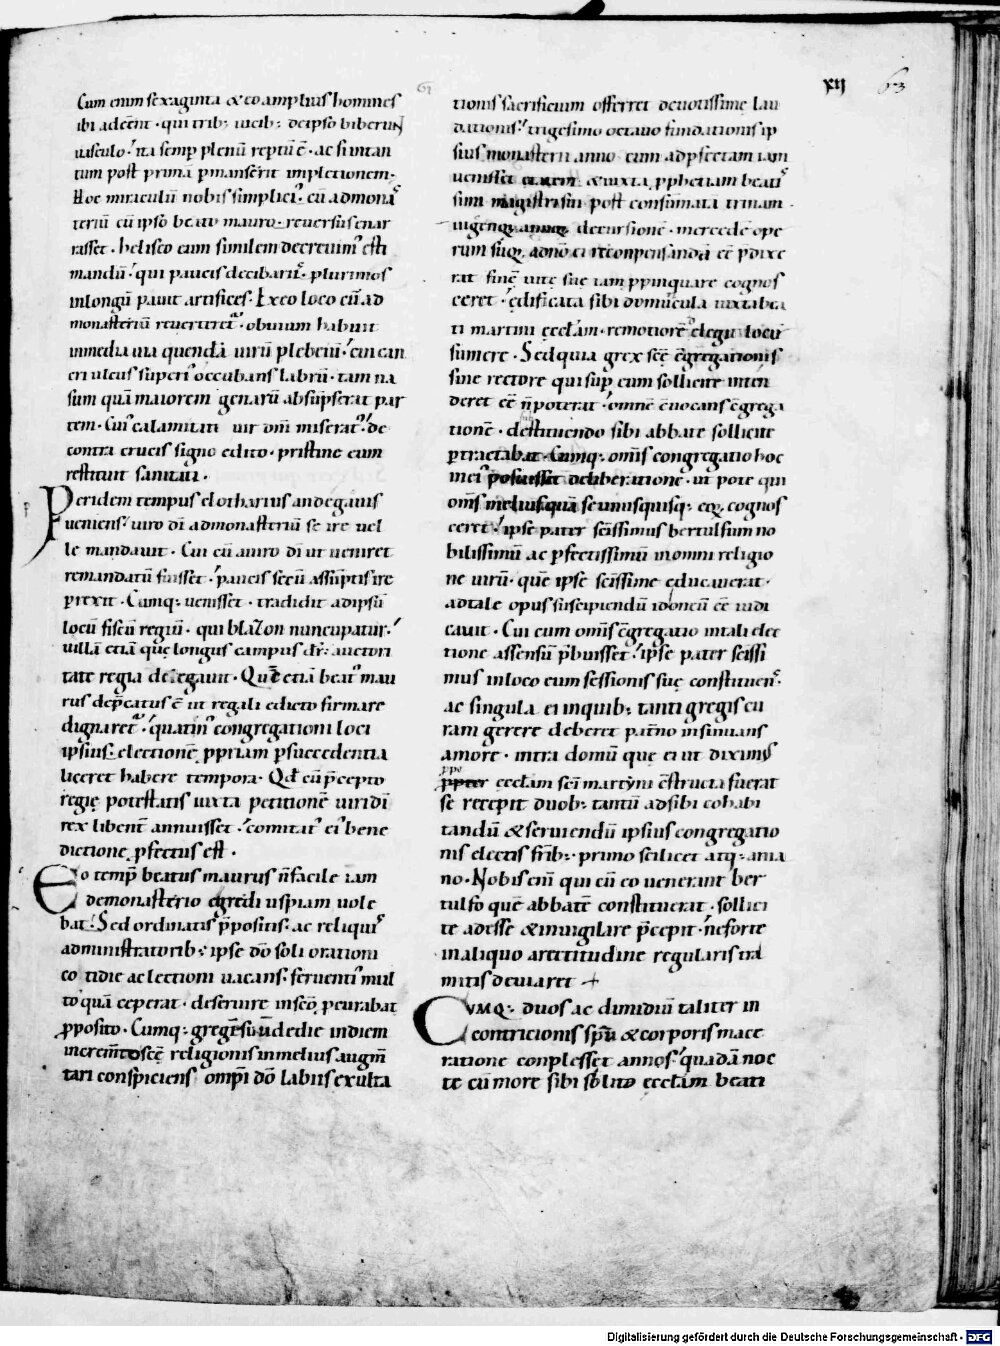 Cum enim sexaginta & eo amplius homines
ibi adeēnt · qui trib; uicib; deipso biberunt
uasculo · ita semp plenū reptū ē · ac si untan
tum post primā pmanserit impletionem ·
Hoc miraculū nobis simplici᷒ · cū admona
teriū cū ipso beato mauro reuersus enar
rasset · helisęo eum similem decreuim᷒ esti
mandū · qui paucis decibariis · plurimos
inlongū pauit artifices · Ex eo loco cū ad
monasteriū reuerteret᷒ · obuium habuit
inmedia uia quendā uirū plebeiū · cui can
cri ulcus superi᷒ occubans labrū · tam na
sum quā maiorem genarū absūpserat par
tem · Cui᷒ calamitati uir dnī miserat᷒ · de
contra crucis signo edito · pristinę eum
restituit sanitati ·
Per idem tempus clotharius andegauis
ueniens · uiro dī admonasteriū se ire uel
le mandauit · Cui cū auiro dī ut ueniret
remandatū fuisset · paucis secū assūptis ire
prexit · Cumq; uenisset · tradidit adipsū
locū fiscū regiū · qui blazon nuncupatur ·
uillā etiā quę longus campus dr̄ · auctori
tate regia delegauit · Quē etiā beat᷒ mau
rus depcatus ē ut regali edicto firmare
dignaret᷒ · quatin᷒ congregationi loci
ipsius · electionē ppriam psuccedentia
liceret habere tempora · Qd cū pcepto
regię potestatis iuxta petitionē uiri dī
rex libent annuisset · comitat᷒ ei᷒ bene
dictione pfectus est ·
Eo tempr beatus maurus n̄facile iam
demonasterio egredi uspiam uole
bat · Sed ordinatis ppositis · ac reliquis
administratorib; · ipse dō soli orationi
cotidie ac lectioni uacans · feruenti᷒ mul
to quā ceperat · deseruire insēo pcurabat
pposito · Cumq; gregē suū dedie indiem
incremto scę religionis inmelius augm̄
tari conspiciens omp̄i dō labiis exulta
XII 63
tionis sacrificium offerret deuotissimę lau
dationis · trigesimo octauo fundationis ip
sius monasterii anno cum adpfectam iam
uenisset etatem · & iuxta pphetiam beatis
simi magistri sui post consūmata trinam
uigenoq annoq decursionē · mercedē ope
rum suoq · adno ei recompensandā eē pdixe
rat finē uitę suę iam ppinquare cognos
ceret · ędificata sibi domūcula iuxta bea
ti martini ecclam · remotiorē elegit locū
sumere · Sed quia grex scē cgregationis
sine rectore qui sup eum sollicite inten
deret eē n̄ poterat · omnē euocans cgrega
tionē · destituendo sibi abbate sollicite
ptractabat · Cumq; omīs congregatio hoc
in ei᷒ posuisset deliberationē · ut pote qui
omīs melius quā se unusquisq; eoq cognos
ceret · ipse pater scissimus bertulfum no
bilissimū ac pfectissimū inomni religio
ne uirū · quē ipse scissime educauerat ·
adtale opus suscipiendū idoneū eē iudi
cauit · Cui cum omīs cgregatio intali elec
tione assensū pbuisset · ipse pater scissi
mus inloco eum sessionis suę constituen᷒
ac singula ei inquib; tanti gregis cu
ram gerere deberet patno insinuans
amore · intra domū quę ei ut diximus
ppe
ppter ecclam scī martyni cstructa fuerat
se recepit duob; tantū adsibi cohabi
tandū & seruiendū ipsius congregatio
nis electis frib; · primo scilicet atq; ania
no · Nobis enī qui cū eo uenerant ber
tulfo quē abbatē constituerat · sollici
te adesse & inuigilare pcepit · ne forte
inaliquo arctitudine regularis tra
mitis deuiaret
Cumq; duos ac dimidiū taliter in
contricionis sps & corporis mace
ratione conplesset annos · quadā noc
te cū more sibi solito ecclam beati
Digitalisierung gefördert durch die Deutsche Forschungsgemeinschaft · DFG